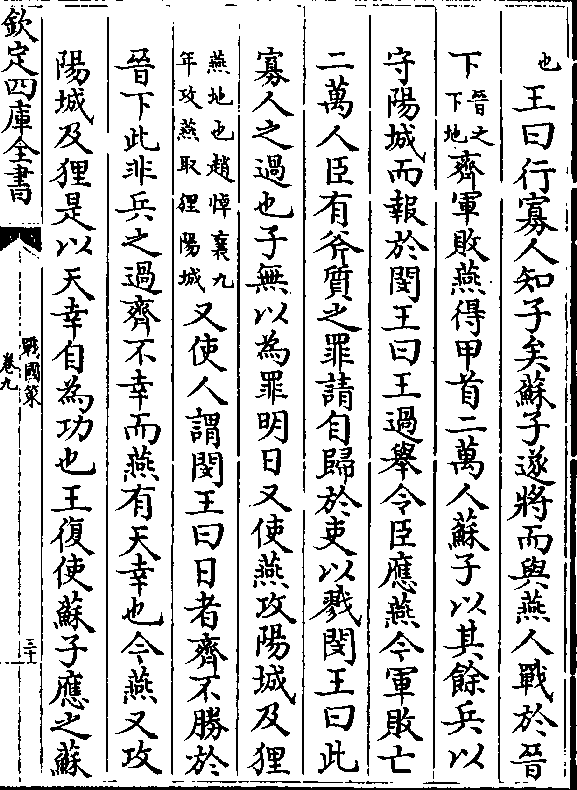 也王曰行寡人知子矣蘇子遂將而與燕人戰於晉
下晉之下地齊軍敗燕得甲首二萬人蘇子以其餘兵以
守陽城而報於閔王曰王過舉令臣應燕今軍敗亡
二萬人臣有斧質之罪請自歸於吏以戮閔王曰此
寡人之過也子無以為罪明日又使燕攻陽城及狸
燕地也趙悼襄九年攻燕取狸陽城又使人謂閔王曰日者齊不勝於
晉下此非兵之過齊不幸而燕有天幸也今燕又攻
陽城及狸是以天幸自為功也王復使蘇子應之蘇
欽定四庫全書
戰國策
卷九
三十